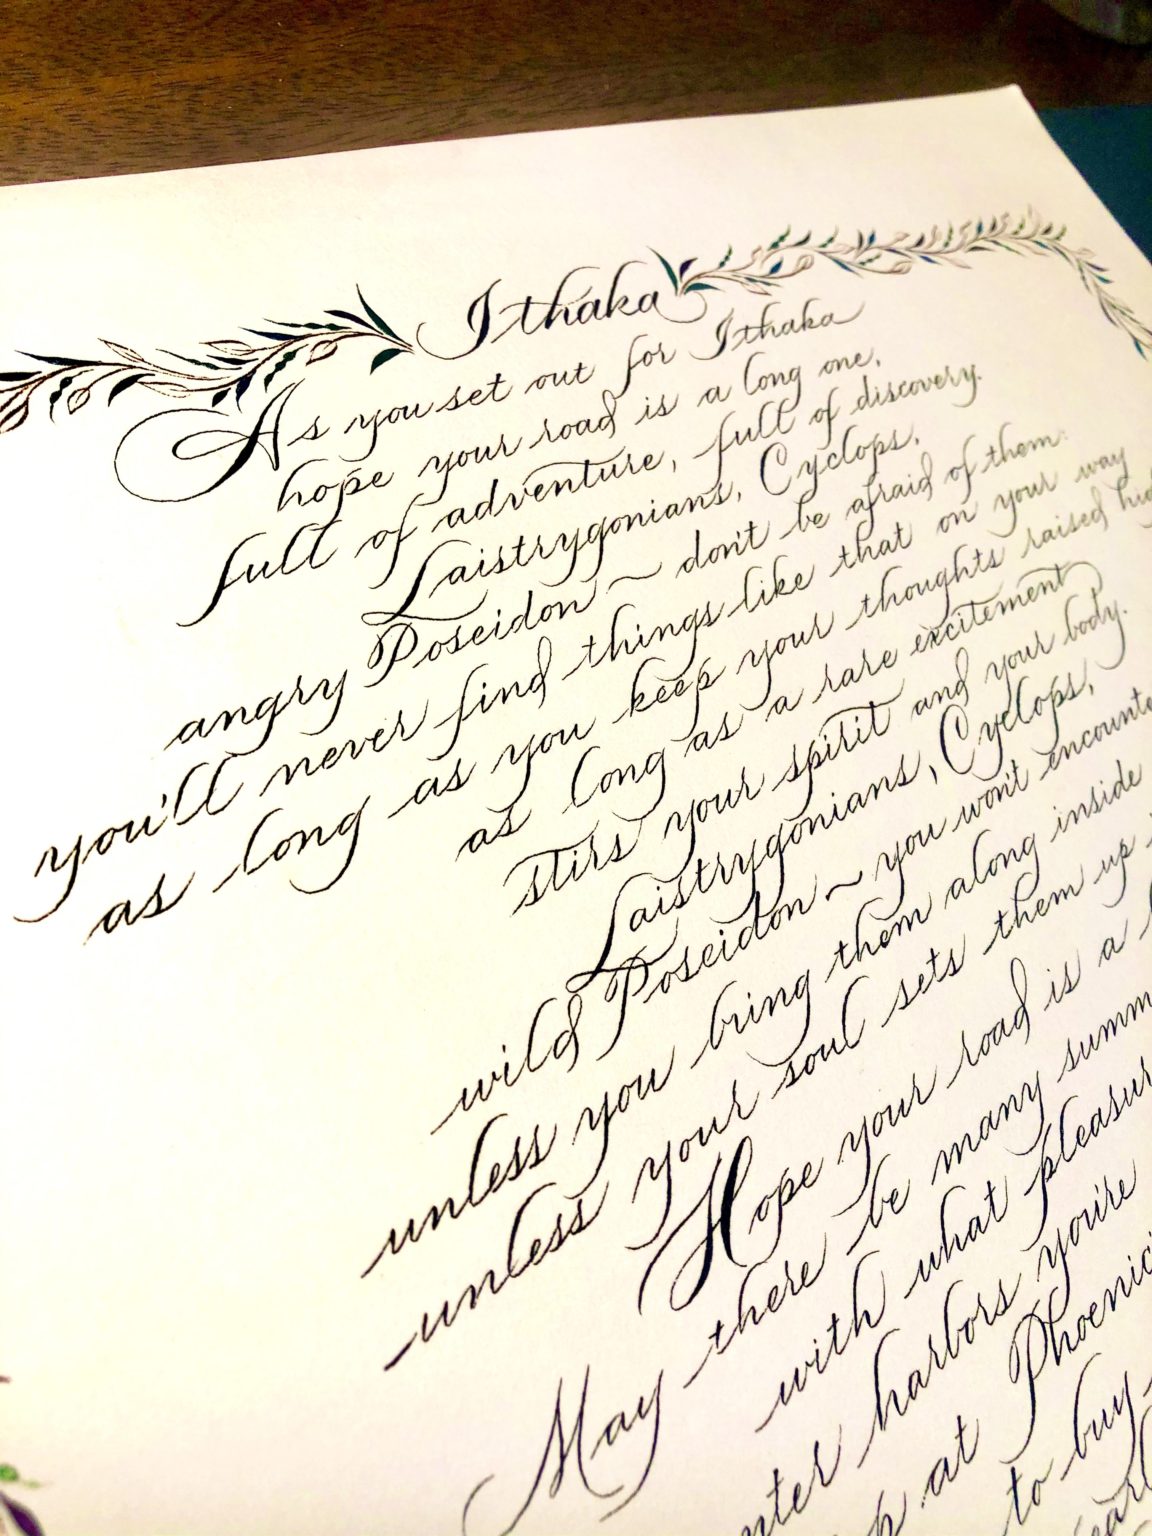 Ithaka
As you set out for Ithaka
hope your road is a long one,
full of adventure, full of discovery.
Laistrygonians, Cyclops,
angry Poseidon ~ don't be afraid of them:
you'll never find things like that on your way
as long as you keep your thoughts raised
as long as a rare excitement
stirs your spirit and your body.
Laistrygonians, Cyclops,
wild Poseidon ~ you won't
unless you bring them along inside
unless your soul sets them up
Hope your road is a
May there be many
with what
harbors you're
at
to buy